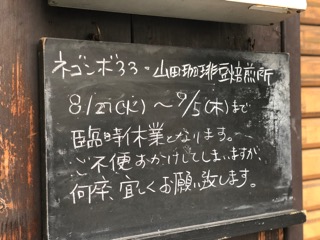 ネゴンボ33・山田珈琲豆焙煎所
8/27(火)～9/5(木)まで
臨時休業となります。
ご不便おかけしてしまいますが、
何卒、宜しくお願い致します。